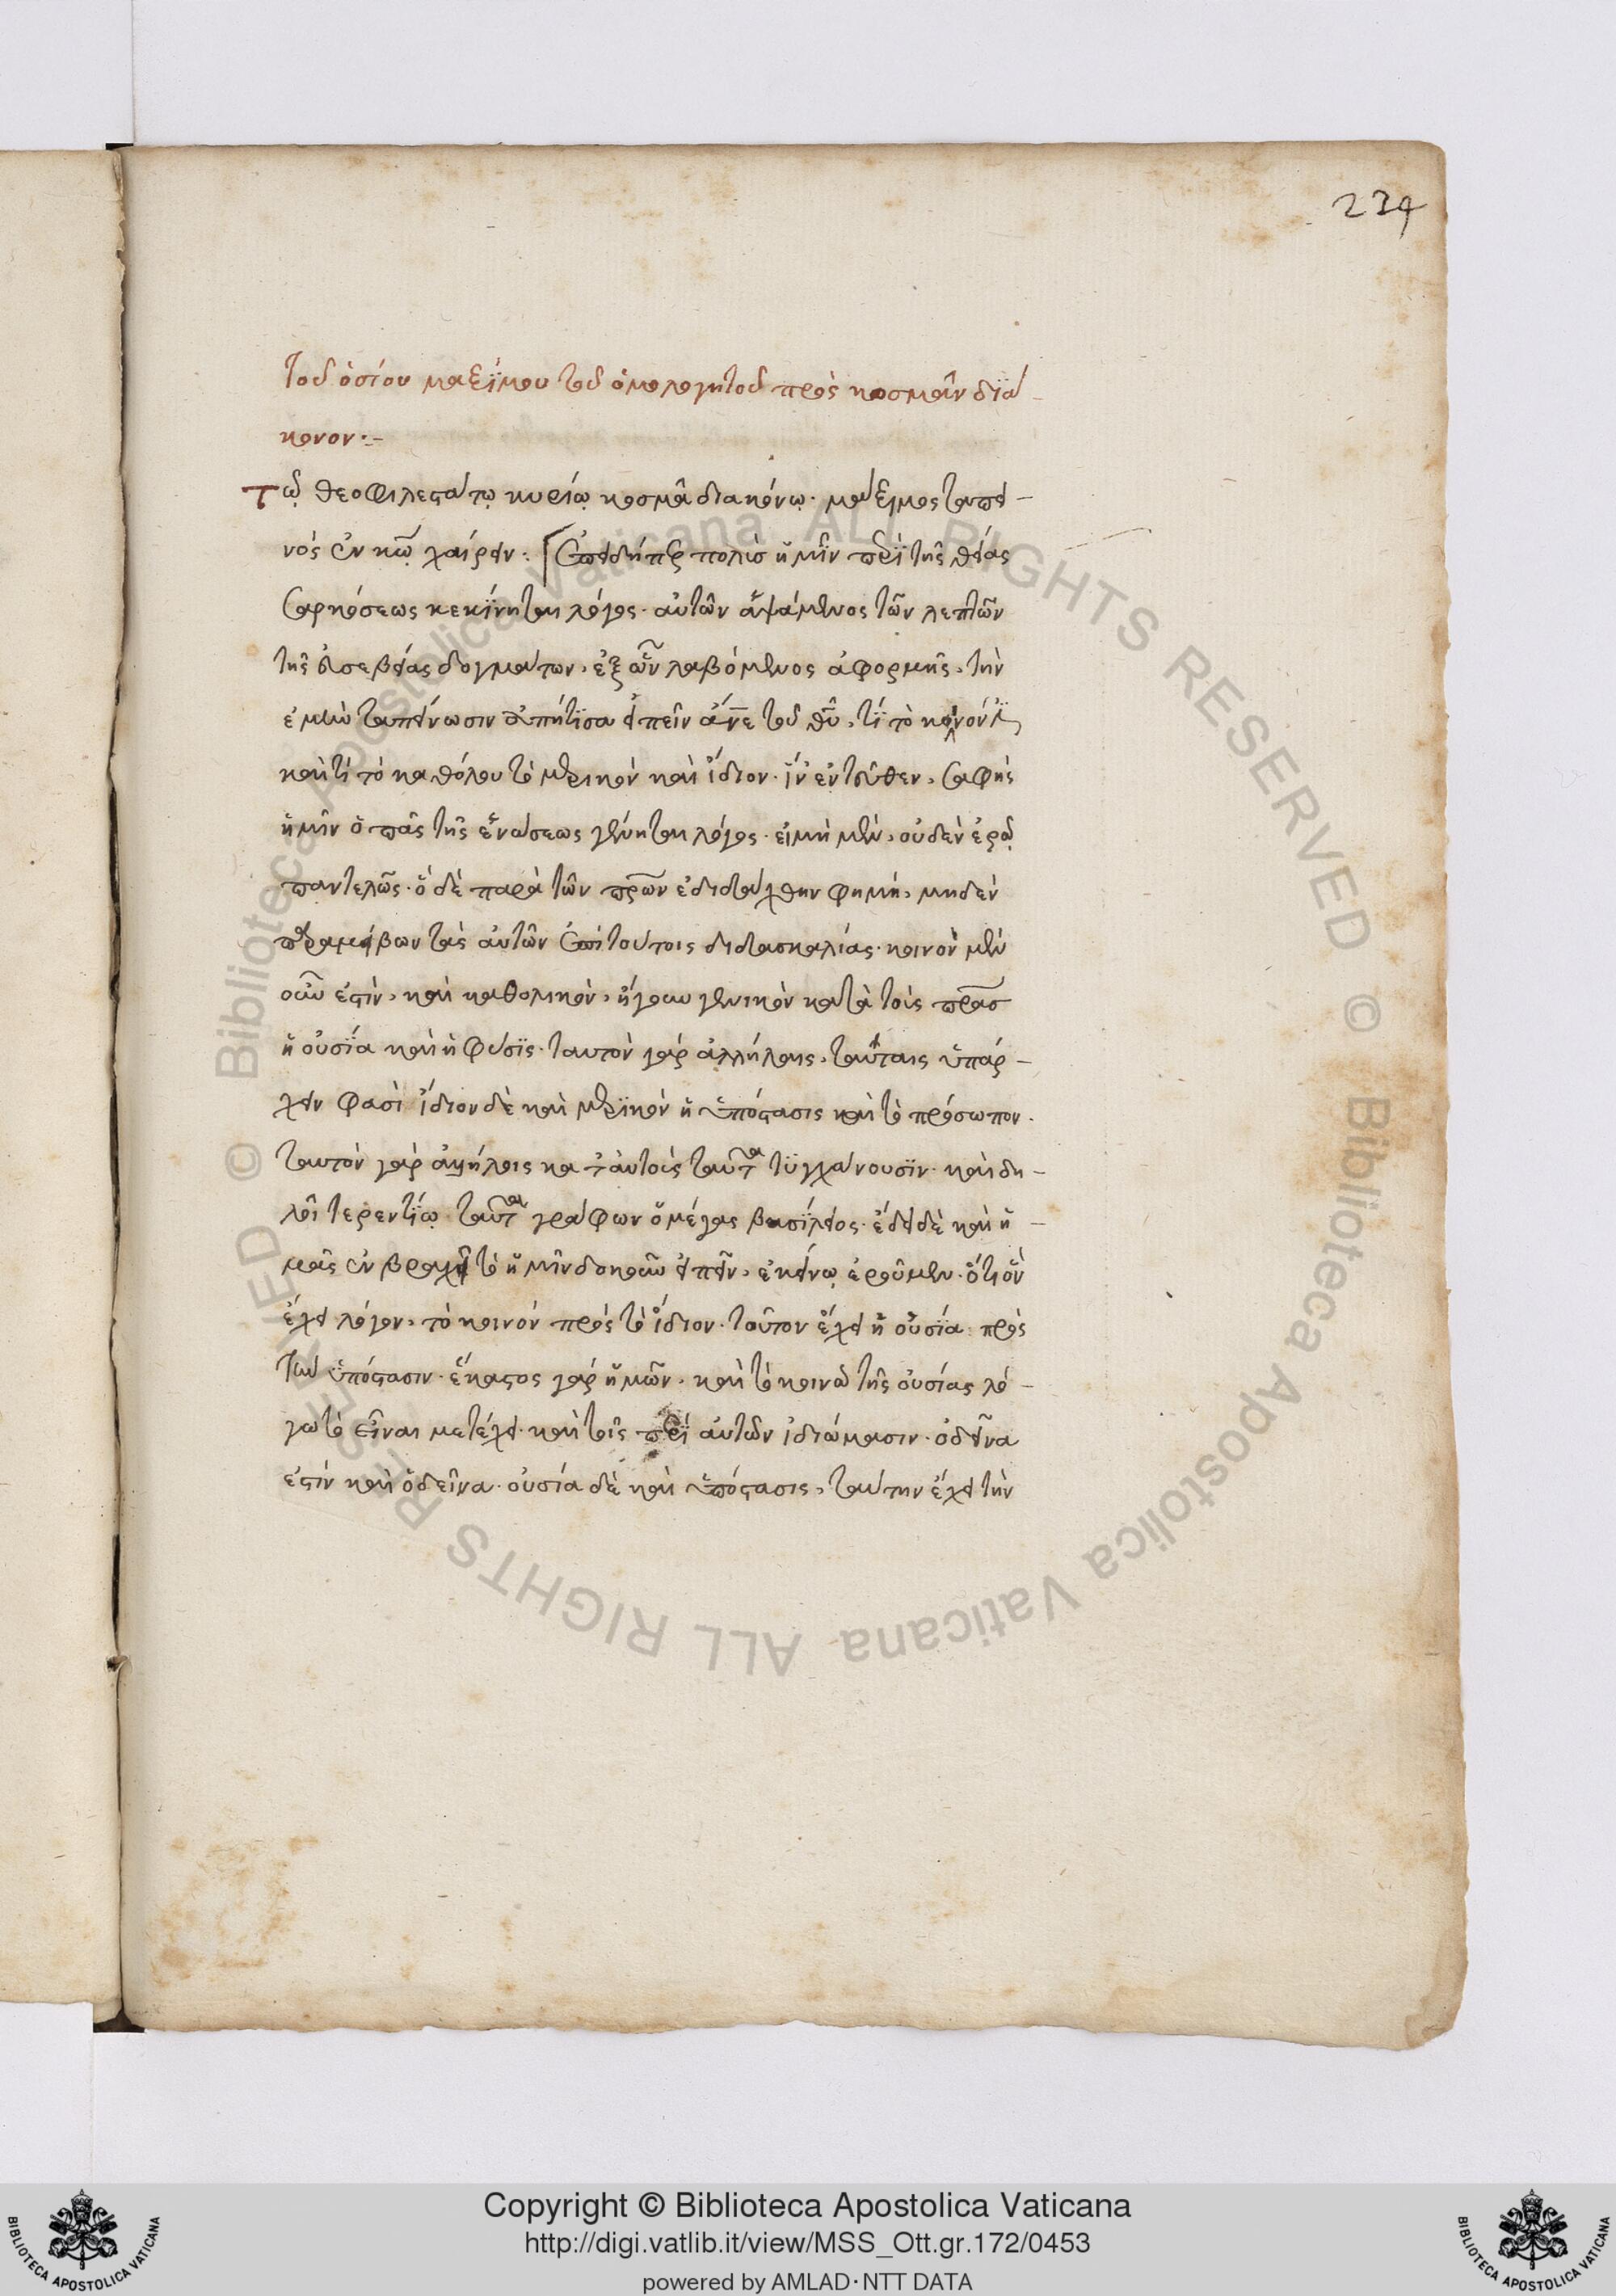 234
τοῦ ὁσίου μαξίμου τοῦ ὁμολογητοῦ πρὸς κοσμᾶν διά
κονον:-
τῶ θεοφιλεστάτω κυρίω κοσμᾶ διακόνω· μάξιμος ταπει-
νός ἐν κω χαίρειν: Ἐπειδήπερ πολὺσ ἡμῖν περὶ τῆς θείας
σαρκόσεως κεκίνηται λόγος· αὐτῶν ἁψάμενος τῶν λεπτῶν
τῆς εὐσεβείας δογμάτων, ἐξ ὧν λαβόμενος ἀφορμῆς, τὴν
ἐμὴν ταπείνωσιν ἀπήτισα εἰπεῖν ἄνε τοῦ θυ, τί τὸ κοινόν
καὶ τί τὸ καθόλου τὸ μερικὸν καὶ ἴδιον· ἵν' ἐντεῦθεν, σαφὴς
ἡμῖν ὁ πᾶς τῆς ἑνώσεως γένηται λόγος· εἰμὴ μὲν, οὐδὲν ἐρῶ
παντελῶς· ὃ δὲ παρὰ τῶν πρων ἐδιδάχθην φημὴ, μηδὲν
παραμείβων τὰς αὐτῶν ἐπὶ τούτοις διδασκαλίας· κοινὸν μὲν
οὖν ἐστὶν, καὶ καθολικὸν, ἤγουν γενικὸν κατὰ τοὺς πρασ
ἡ οὐσία καὶ ἡ φύσις· ταυτὸν γὰρ ἀλλήλαις, ταύταις ὑπάρ-
χειν φασὶ ἴδιον δὲ καὶ μερικὸν ἡ ὑπόστασις καὶ τὸ πρόσωπον·
ταυτὸν γὰρ ἀλλήλοις κατ' αὐτοὺς ταῦτα τυγχάνουσιν· καὶ δη-
λοῖ τερεντίω ταῦτα γράφων ὁ μέγας βασίλειος· ἔδει δὲ καὶ ἡ-
μᾶς ἐν βραχεῖ τὸ ἡμῖν δοκοῦν εἰπεῖν, ἐκείνω ἐροῦμεν· ὅτι ὃν
ἔχει λόγον, τὸ κοινόν πρὸς τὸ ἴδιον· τοῦτον ἔχει ἡ οὐσία πρὸς
τὴν ὑπόστασιν· ἕκαστος γὰρ ἡμῶν, καὶ τὸ κοινῶ τῆς οὐσίας λό-
γω τὸ εἶναι μετέχει· καὶ τοῖς περὶ αὐτῶν ἰδιώμασιν· ὁ δεῖνα
ἐστίν καὶ ὁ δεῖνα· οὐσία δὲ καὶ ὑπόστασις, ταύτην ἔχει τὴν
Copyright © Biblioteca Apostolica Vaticana
http://digi.vatlib.it/view/MSS_Ott.gr.172/0453
powered by AMLAD·NTT DATA
BIBLIOTECA APOSTOLICA VATICANA
BIBLIOTECA APOSTOLICA VATICANA
© Biblioteca Apostolica Vaticana ALL RIGHTS RESERVED © Biblioteca Apostolica Vaticana ALL RIGHTS RESERVED